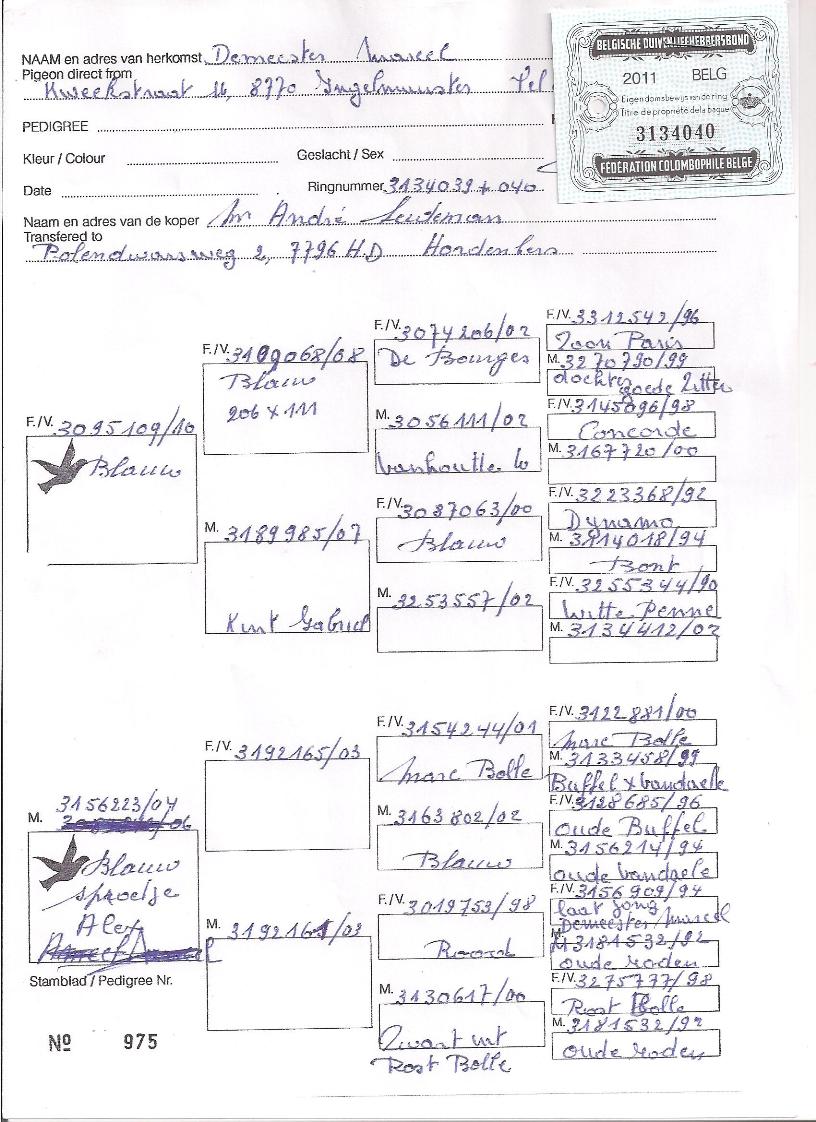 NAAM en adres van herkomst Demeester Marcel
Pigeon direct from
Kweekstraat 16, 8770 Ingelmunster Tel
PEDIGREE
Kleur / Colour
Geslacht / Sex
Date
Ringnummer 3134039 + 040
Naam en adres van de koper Mr André Leuteman
Transfered to
2, 7796 H.D
BELGISCHE DUIVENLIEFHEBBERSBOND
2011 BELG
Eigendomsbewijs van de ring
Titre de propriété de la bague
3134040
FÉDÉRATION COLOMBOPHILE BELGE
F./V. 3095109/10
Blauw
F./V. 3109068/08
Blauw
206 x 111
M. 3189985/07
Kint Gabriel
F./V. 3074206/02
De Bourges
M. 3056111/02
Vanhoutte
F./V. 3087063/00
Blauw
M. 3253557/02
F./V. 3312542/96
Zoon Paris
M. 3270790/99
dochter goede Zitter
F./V. 3145096/98
Concorde
M. 3167720/00
F./V. 3223368/92
Dynamo
M. 3914018/94
Bont
F./V. 3255344/90
Witte Penne
M. 3134412/02
M. 3156223/04
Blauw
sproetje
Alex
F./V. 3192165/03
M. 3192161/03
F./V. 3154244/01
Marc Bolle
M. 3163802/02
Blauw
F./V. 3019753/98
Rood
M. 3130617/00
Zwart uit
Rost Bolle
F./V. 3122881/00
Marc Bolle
M. 3133458/99
Buffel x Vandaele
F./V. 3128685/96
oude Buffel
M. 3156214/94
oude Vandaele
F./V. 3156909/94
laat jong
Demeester Marcel
M. 3181532/92
oude roden
F./V. 3275777/98
Rost Bolle
M. 3181532/92
oude roden
Stamblad / Pedigree Nr.
Nº 975